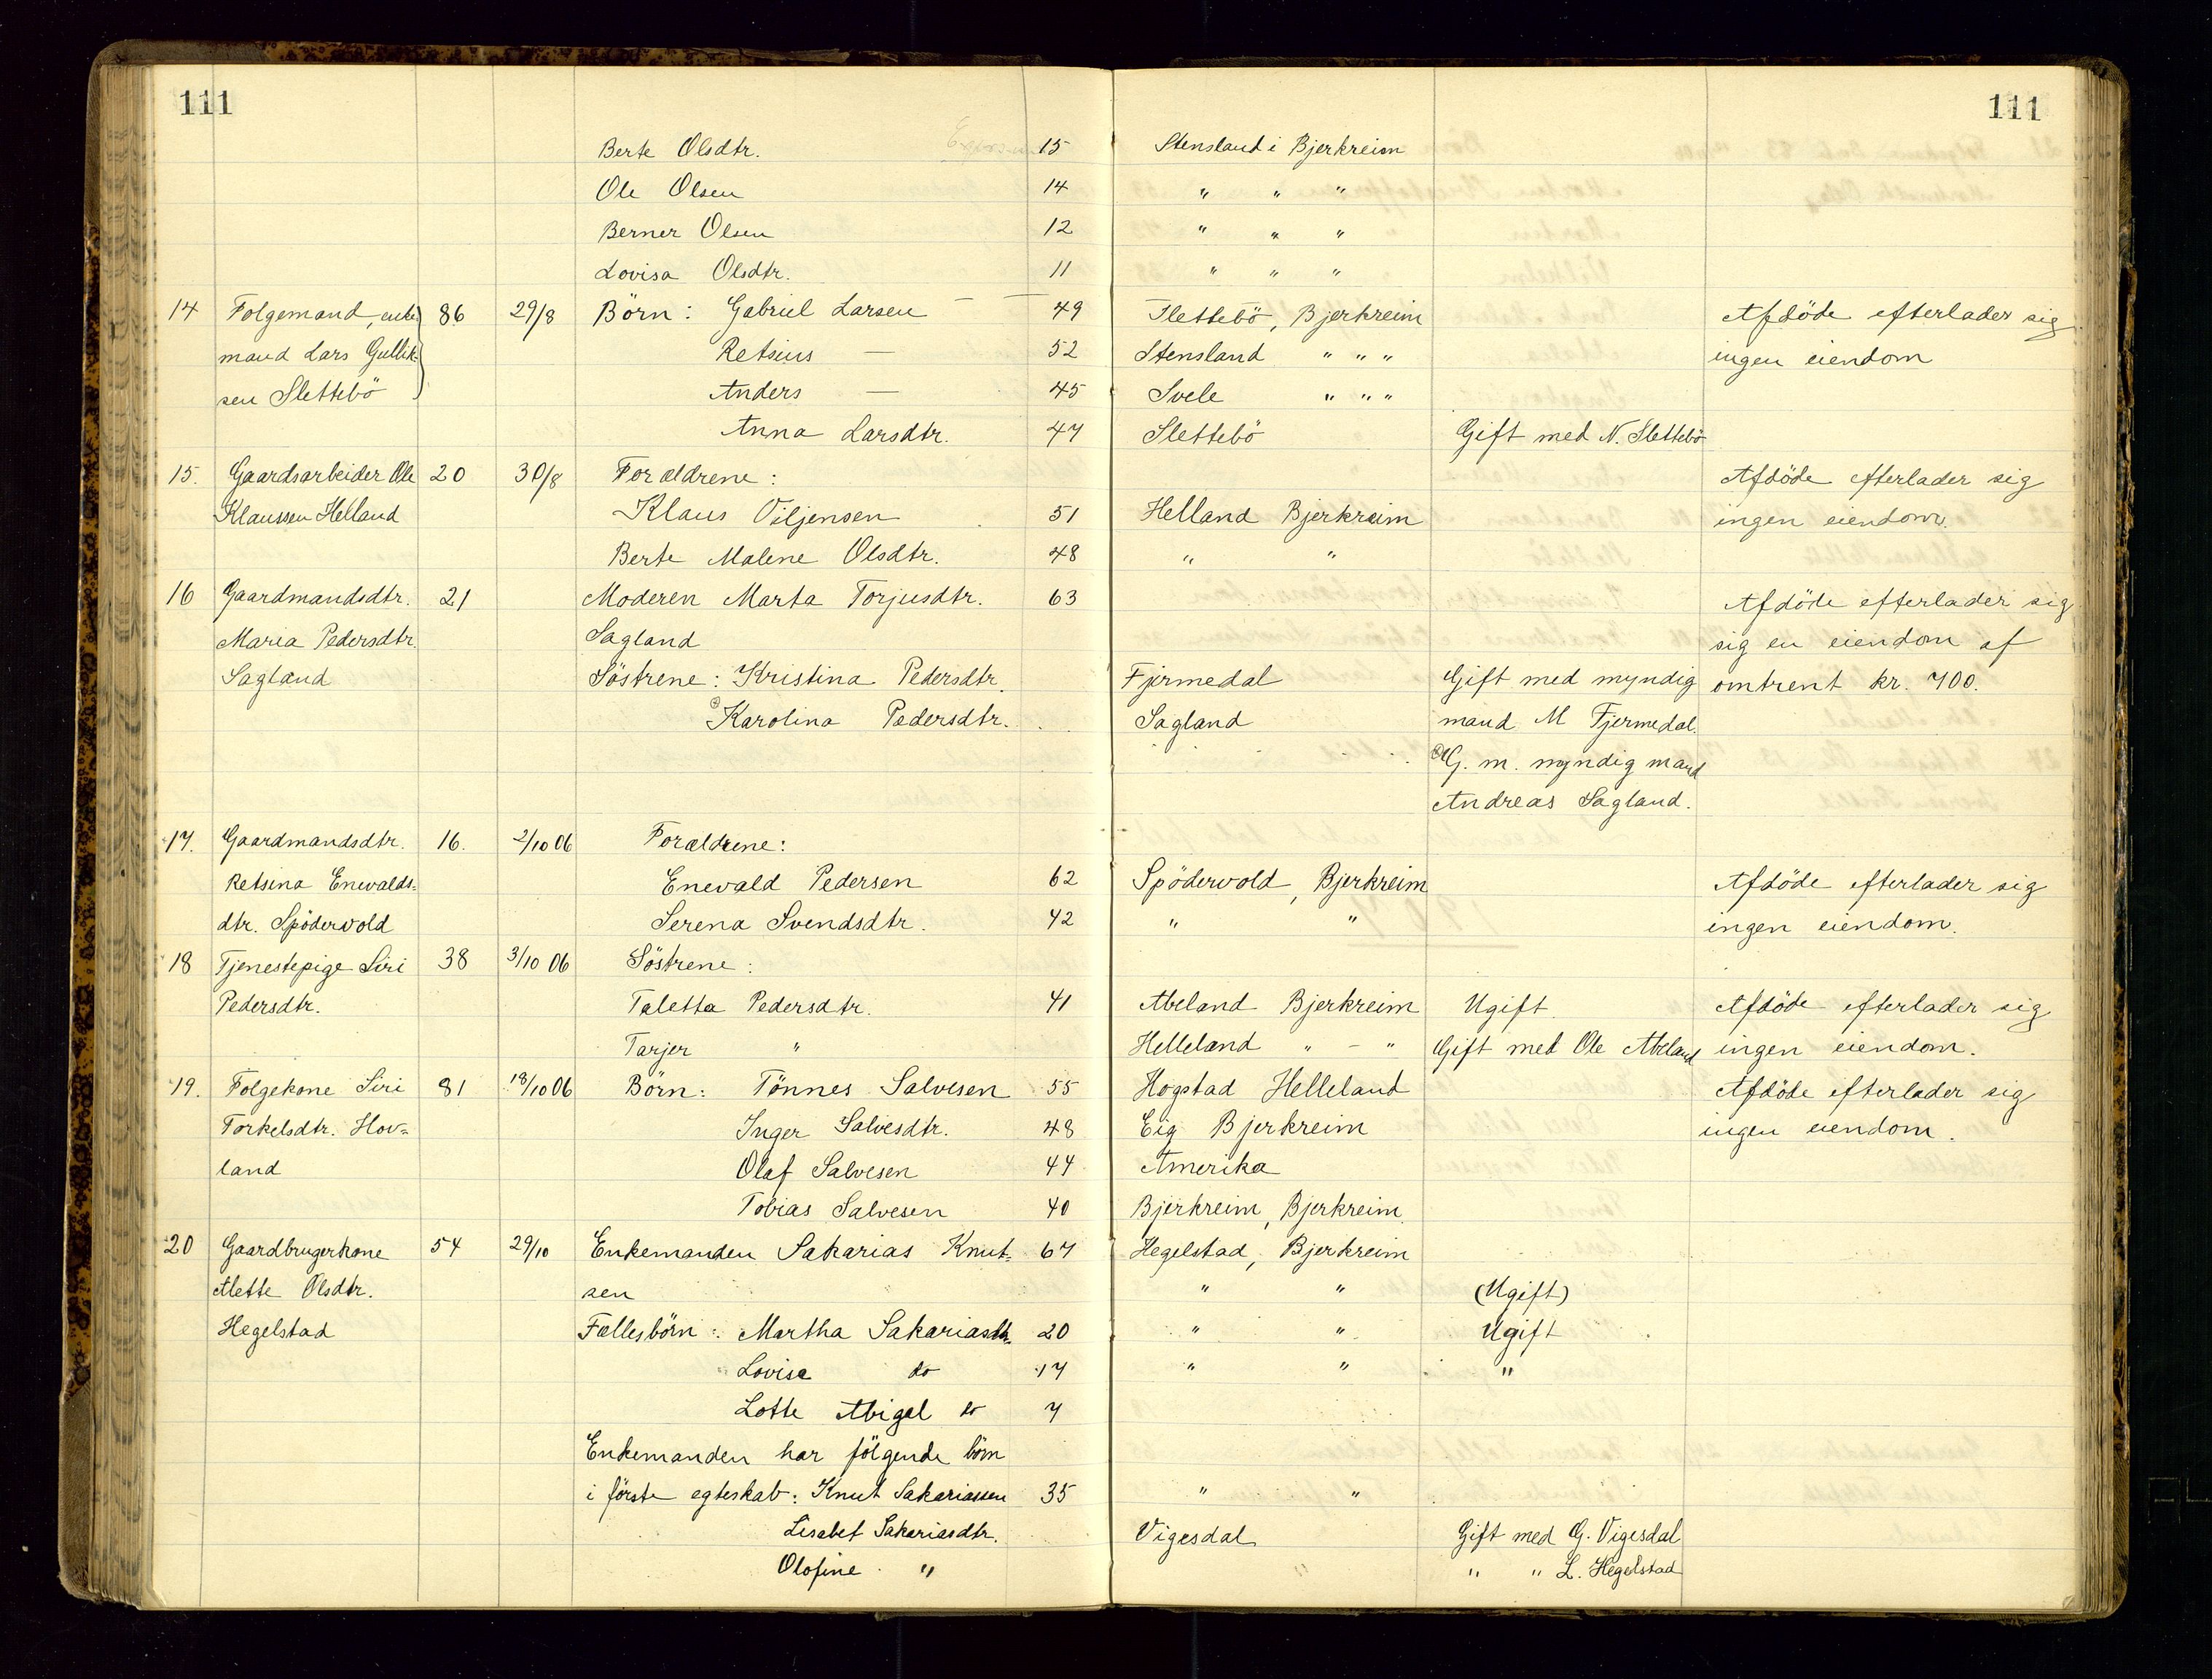 111 111
Berte Olsdtr. 15 Stensland i Bjerkreim
Ole Olsen 14 " " "
Berner Olsen 12 " " "
Lovisa Olsdtr. 11 " " "
14 Folgemand, enke 86 29/8 Börn: Gabriel Larsen 49 Slettebö, Bjerkreim Afdöde efterlader sig
mand Lars Gullik- Retsius — 52 Stensland " " " ingen eiendom
sen Slettebö Anders — 45 Svele " " "
Anna Larsdtr. 47 Slettebö Gift med N. Slettebö
15. Gaardsarbeider Ole 20 30/8 Forældrene: Afdöde efterlader sig
Klaussen Helland Klaus Viljensen 51 Helland Bjerkreim ingen eiendom.
Berte Malene Olsdtr. 48 " "
16 Gaardmandsdtr. 21 Moderen Marta Torjusdtr. 63 Afdöde efterlader sig
Maria Pedersdtr. Sagland sig en eiendom af
Sagland Söstrene: Kristina Pedersdtr. Fjermedal Gift med myndig omtrent kr. 700.
Karolina Pedersdtr. Sagland mand M Fjermedal.
G. m. myndig mand
Andreas Sagland.
17. Gaardmandsdtr. 16. 2/10 06 Forældrene:
Retsina Enevalds- Enevald Pedersen 62 Spödervold, Bjerkreim Afdöde efterlader sig
dtr. Spödervold Serena Svendsdtr. 42 " " ingen eiendom.
18 Tjenestepige Siri 38 3/10 06 Söstrene:
Pedersdtr. Taletta Pedersdtr. 41 Abeland Bjerkreim Ugift. Afdöde efterlader sig
Tarjer " Helleland " - " Gift med Ole Abeland ingen eiendom.
19. Folgekone Siri 81 18/10 06 Börn: Tönnes Salvesen 55 Hogstad Helleland Afdöde efterlader sig
Torkelsdtr. Hov- Inger Salvesdtr. 48 Eig Bjerkreim ingen eiendom.
land Olaf Salvesen 44 Amerika
Tobias Salvesen 40 Bjerkreim, Bjerkreim.
20 Gaardbrugerkone 54 29/10 Enkemanden Sakarias Knut- 67 Hegelstad, Bjerkreim
Alette Olsdtr. sen " " (Ugift)
Hegelstad Fællesbörn: Martha Sakariasdtr. 20 " " Ugift
Lovise do 17 " " "
Lotte Abigal do 7
Enkemanden har fölgende börn
i förste egteskab: Knut Sakariassen 35 " "
Lisabet Sakariasdtr. Vigesdal Gift med G. Vigesdal
Olofine " " " " L. Hegelstad